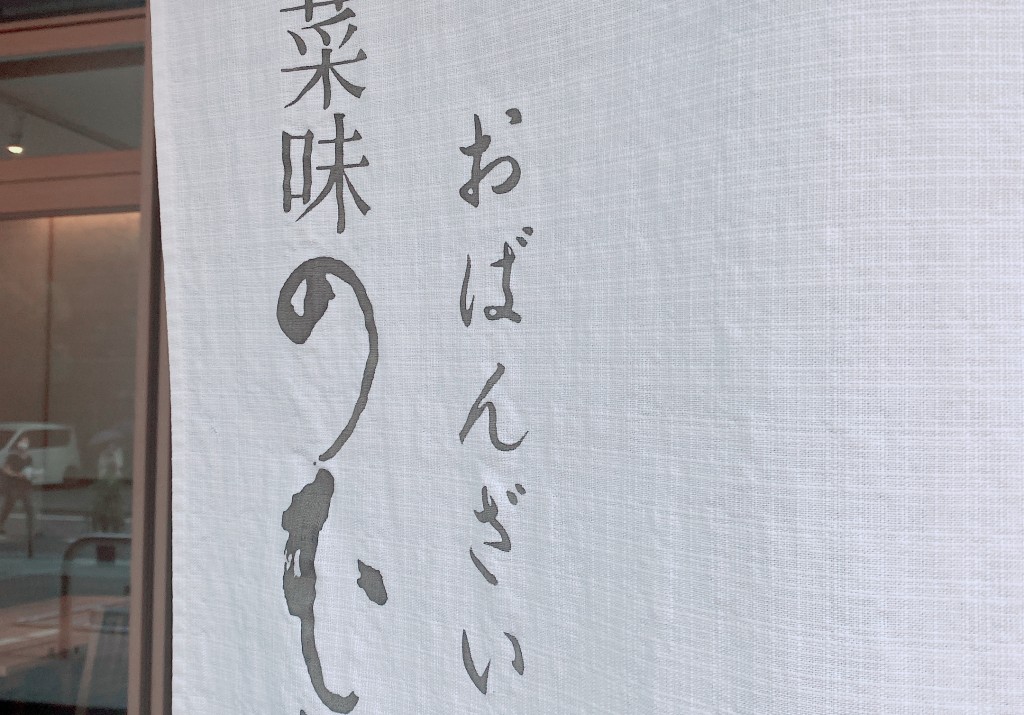 おばんざい
菜味のむ